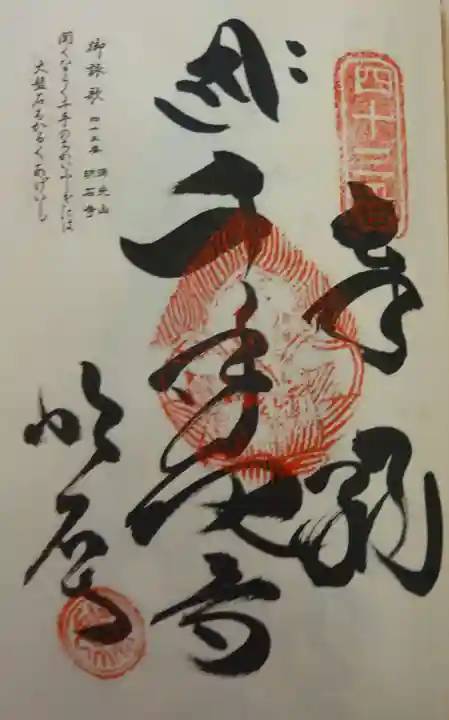 四十三番
奉納
千手観音
明石寺
御詠歌 四十三番 源光山 明石寺
聞くならく千手のちかいふしぎには
大盤石もかろくあげいし